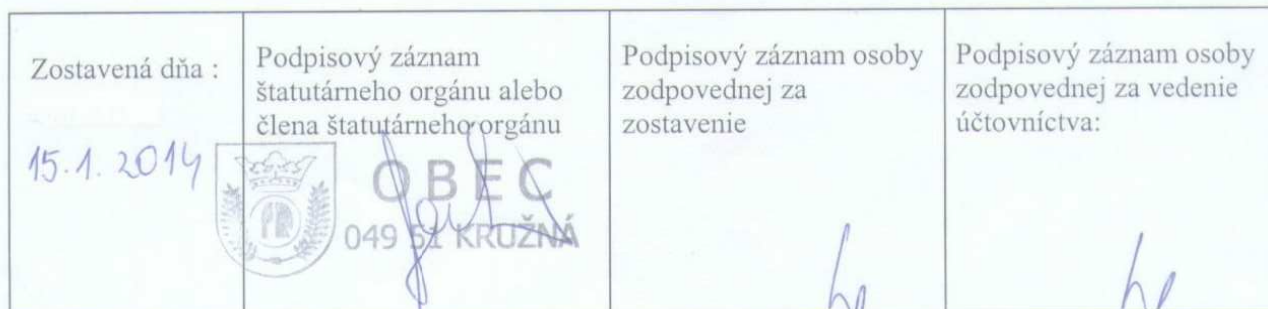 Zostavená dňa :
15.1. 2014
Podpisový záznam
štatutárneho orgánu alebo
člena štatutárneho orgánu
OBEC
049 51 KRUŽNÁ
Podpisový záznam osoby
zodpovednej za
zostavenie
Podpisový záznam osoby
zodpovednej za vedenie
účtovníctva: